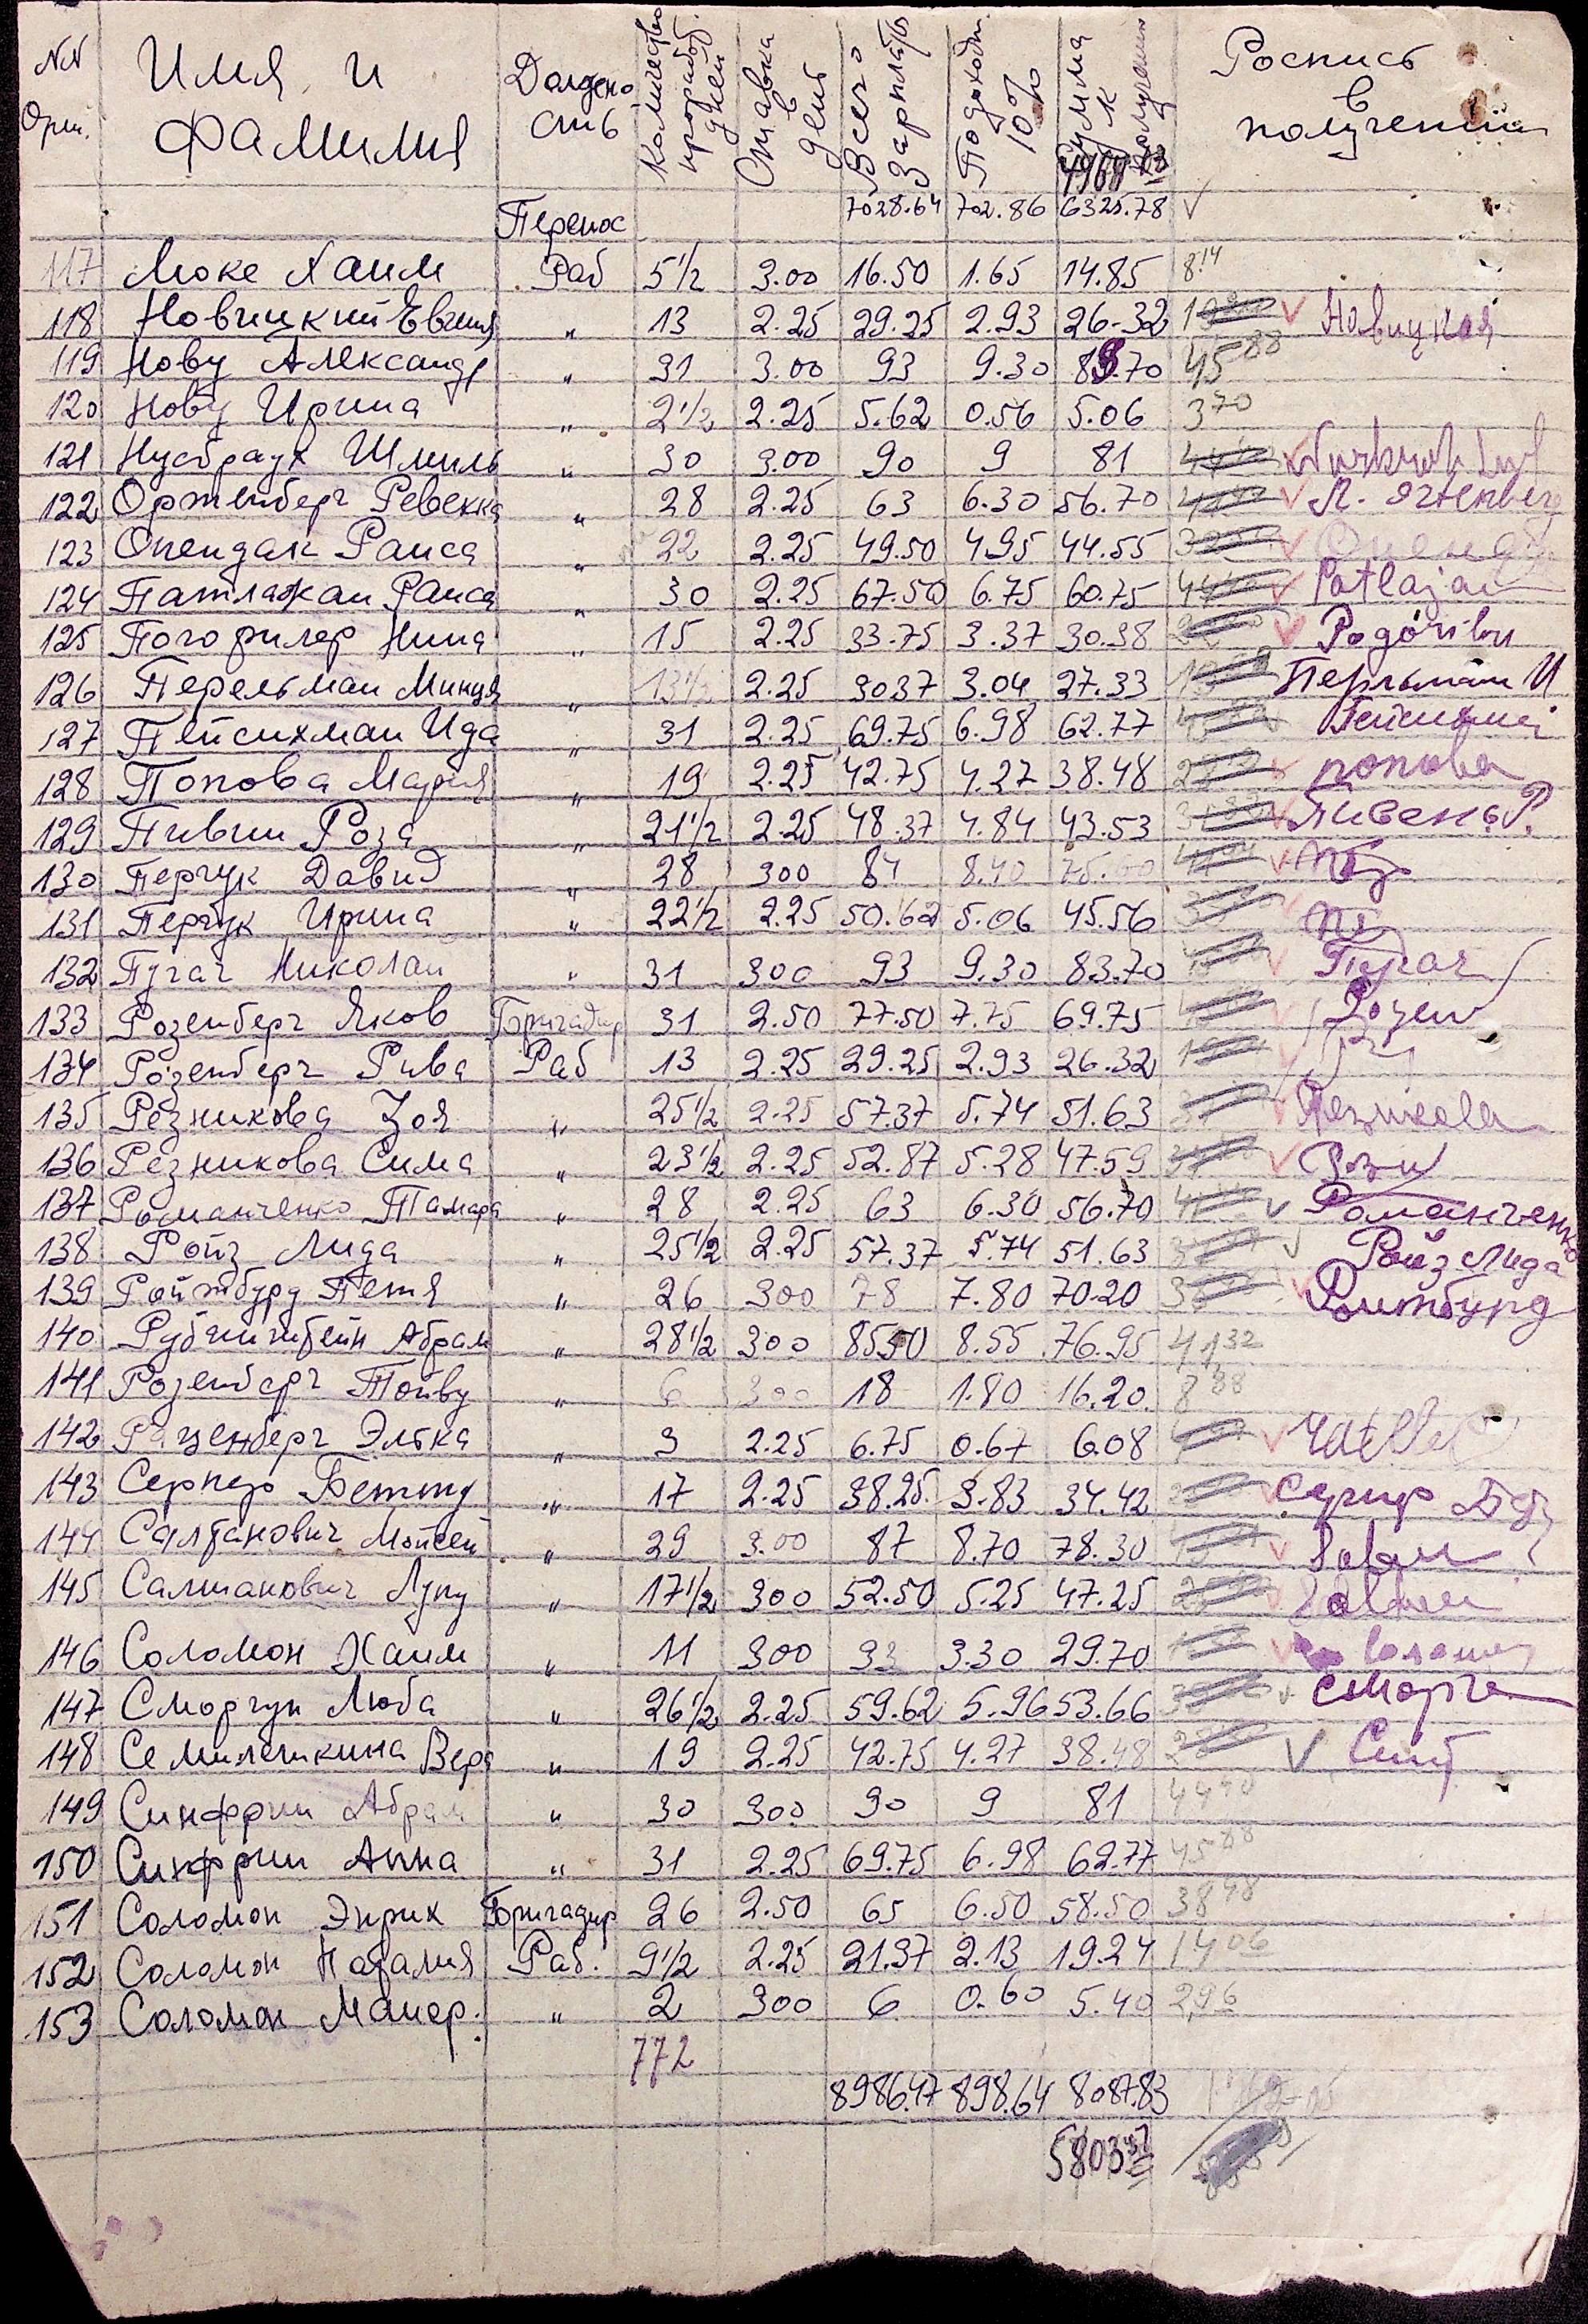 NN Орт. Имя и Фамилия Должность Количество проработ. дней Ставка в день Всего Зарплаты Подоходн. 10% Сумма к получению Роспись в получении
4968
Перенос 7028.64 702.86 6325.78 √
117 Люке Хаим Раб 5 1/2 3.00 16.50 1.65 14.85 8.14
118 Новицкий Евгения " 13 2.25 29.25 2.93 26-32 √ Новицкая
119 Нову Александр " 31 3.00 93 9.30 83.70 45 88
120 Нову Ирина " 2 1/2 2.25 5.62 0.56 5.06 3 70
121 Нусбраух Шмиль " 30 3.00 90 9 81 √
122 Ортенберг Ревекка " 28 2.25 63 6.30 56.70 √ Ortenberg
123 Опендак Раиса " 22 2.25 49.50 4.95 44.55 √
124 Патлажан Раиса " 30 2.25 67.50 6.75 60.75 √ Patlajan
125 Погорилер Нина " 15 2.25 33.75 3.37 30.38 √ Pogoriler
126 Перельман Минця " 13 1/2 2.25 30.37 3.04 27.33 Перльман И
127 Пейсихман Ида " 31 2.25 69.75 6.98 62.77 √
128 Попова Мария " 19 2.25 42.75 4.27 38.48 √ попова
129 Пивен Роза " 21 1/2 2.25 48.37 4.84 43.53 √ Пивень Р.
130 Перчук Давид " 28 300 84 8.40 75.60 √
131 Перчук Ирина " 22 1/2 2.25 50.62 5.06 45.56
132 Пугач Николай " 31 300 93 9.30 83.70 √ Пугач
133 Розенберг Яков Бригадир 31 2.50 77.50 7.75 69.75 √ Розен
134 Розенберг Рива Раб 13 2.25 29.25 2.93 26.32 √
135 Резникова Зоя " 25 1/2 2.25 57.37 5.74 51.63 √ Reznikova
136 Резникова Сима " 23 1/2 2.25 52.87 5.28 47.59 √
137 Романченко Тамара " 28 2.25 63 6.30 56.70 √ Романченко
138 Ройз Лида " 25 1/2 2.25 57.37 5.74 51.63 √ Ройз Лида
139 Ройтбурд Петя " 26 300 78 7.80 70.20 √ Роитбурд
140 Рубинштейн Абрам " 28 1/2 300 85.50 8.55 76.95 41 32
141 Розенберг Тойву " 6 300 18 1.80 16.20. 8 88
142 Розенберг Элька " 3 2.25 6.75 0.67 6.08 √
143 Серпер Бетту " 17 2.25 38.25. 3.83 34.42 √
144 Салтанович Мойсей " 29 3.00 87 8.70 78.30 √
145 Салтанович Лупу " 17 1/2 300 52.50 5.25 47.25 √
146 Соломон Хаим " 11 300 33 3.30 29.70 √
147 Сморгун Люба " 26 1/2 2.25 59.62 5.96 53.66 √ Сморгун
148 Семилеткина Вера " 19 2.25 42.75 4.27 38.48 √
149 Синфрин Абрам " 30 300 90 9 81 44 40
150 Синфрин Анна " 31 2.25 69.75 6.98 62.77 45 88
151 Соломон Энрих Бригадир 26 2.50 65 6.50 58.50 38 48
152 Соломон Наталия Раб. 9 1/2 2.25 21.37 2.13 19.24 14 06
153 Соломон Манер. " 2 300 6 0.60 5.40 2,96
772
8986.47 898.64 8087.83
5803 37